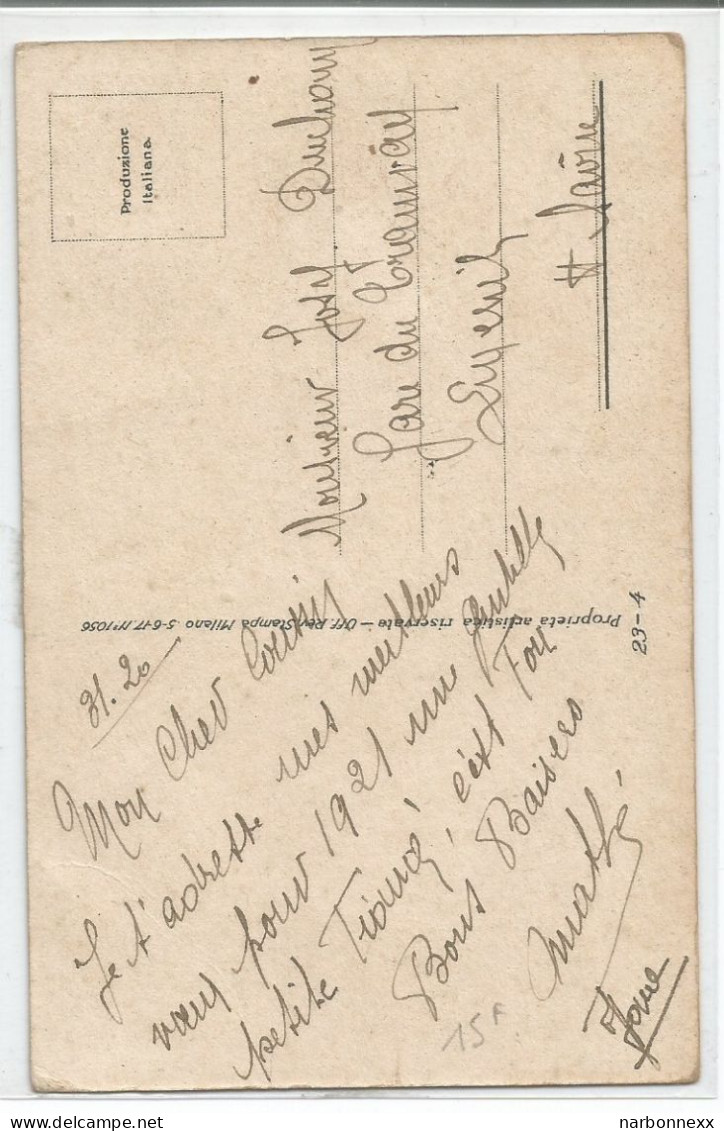 Produzione
Italiana
Monsieur Duchamp
Gare du Tramway
H Saône
Proprietà artistica riservata - Off. Rev. Stampa Milano 5-6-17 N° 1056
23-4
31.20
Mon Cher Cousin
Je t'adresse mes meilleurs
vœux pour 1921 une gentille
petite Fiancé, c'est Fou
Bons Baisers
15F
narbonnexx